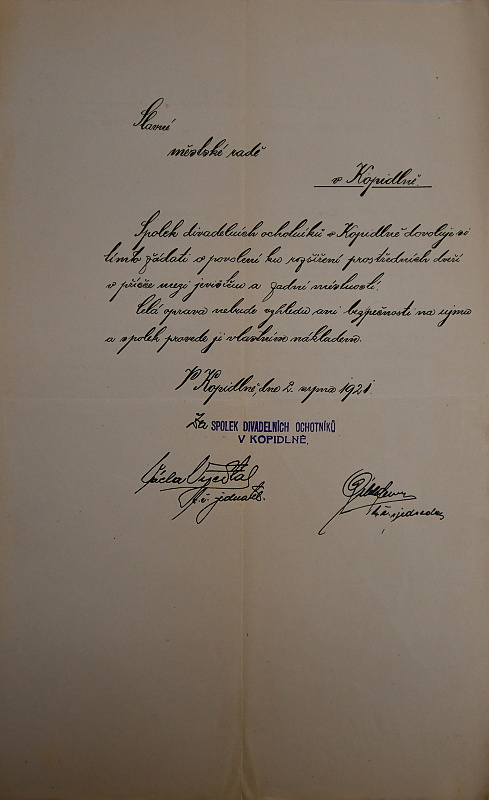 Slavné
městské radě
v Kopidlně
Spolek divadelních ochotníků v Kopidlně dovoluje si
tímto žádati o povolení ku rozšíření prostředních dveří
v příčce mezi jevištěm a zadní místností.
Celá oprava nebude vzhledu ani bezpečnosti na ujmu
a spolek provede ji vlastním nákladem.
V Kopidlně, dne 2. srpna 1921
Za SPOLEK DIVADELNÍCH OCHOTNÍKŮ
V KOPIDLNĚ,
t. č. jednatel.
t. č. předseda